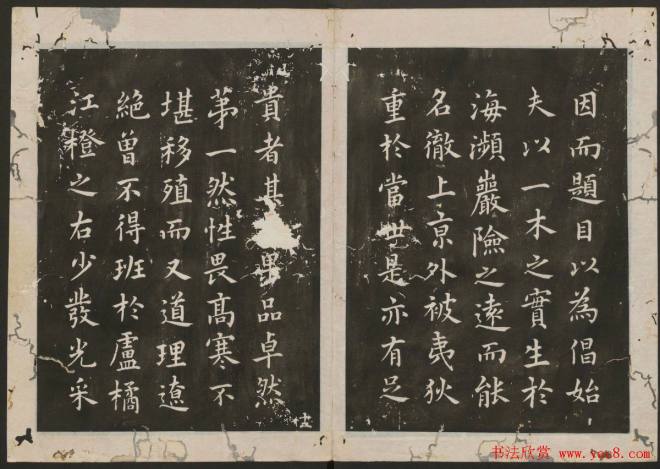 因而題目以為倡始
夫以一木之實生於
海瀕巖險之遠而能
名徹上京外被夷狄
重於當世是亦有足
貴者其畏品卓然
第一然性畏高寒不
堪移殖而又道理遼
絕曾不得班於盧橘
江橙之右少發光采
十二
书法欣賞
www.yac8.com